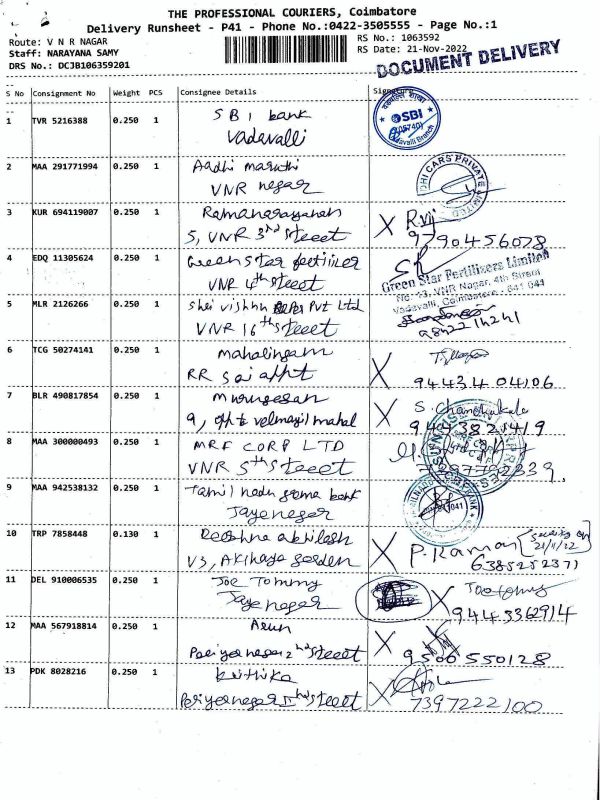 THE PROFESSIONAL COURIERS, Coimbatore
Delivery Runsheet - P41 - Phone No.:0422-3505555 - Page No.:1
Route: V N R NAGAR
RS No.: 1063592
Staff: NARAYANA SAMY
RS Date: 21-Nov-2022
DRS No.: DCJB106359201
DOCUMENT DELIVERY
S No Consignment No Weight PCS Consignee Details Signature
1 TVR 5216388 0.250 1 SBI bank
Vadavalli
SBI
Vadavalli Branch
2 MAA 291771994 0.250 1 Aadhi maruthi
VNR nagar
DHI CARS PRIVATE LIMITED
3 KUR 694119007 0.250 1 Ramanarayanan
5, VNR 3rd street
X R.Viji
9790456078
4 EDQ 11305624 0.250 1 Green Star
VNR 4th street
Green Star Fertilizers Limited
No: 13, VNR Nagar, 4th Street
Vadavalli, Coimbatore - 641 041
5 MLR 2126266 0.250 1 Shri vishnu Pvt Ltd
VNR 16th street
6 TCG 50274141 0.250 1 mahalingam
RR Sai appt
X
94434 04106
7 BLR 490817854 0.250 1 murugesan
9, opp to velmayil mahal
X S. Chandrakala
8 MAA 300000493 0.250 1 MRF CORP LTD
VNR 5th street
MRF CORP
9 MAA 942538132 0.250 1 Tamil nadu grama bank
Jaya nagar
10 TRP 7858448 0.130 1 akhilesh
V3, Akshaya garden
X P. Raman
21/11/22
6385252371
11 DEL 910006535 0.250 1 Joe Tommy
Jaya nagar
X
9443362914
12 MAA 567918814 0.250 1 Arun
Periyanagar 2nd street
X
9500550128
13 PDK 8028216 0.250 1 Krithika
street
X
7397222100